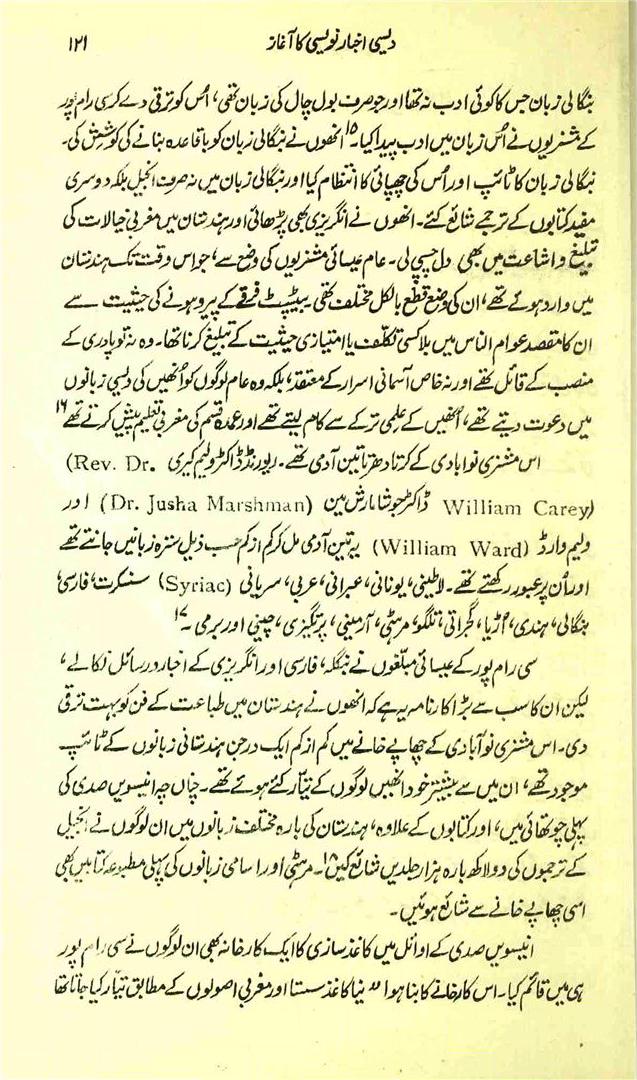 دیسی اخبار نویسی کا آغاز ۱۲۱
بنگالی زبان جس کا کوئی ادب نہ تھا اور جو صرف بول چال کی زبان تھی، اُس کو ترقی دے کر سی رام پور
کے مشنریوں نے اُس زبان میں ادب پیدا کیا۔۱۵ انھوں نے بنگالی زبان کو باقاعدہ بنانے کی کوشش کی۔
بنگالی زبان کا ٹائپ اور اُس کی چھپائی کا انتظام کیا اور بنگالی زبان میں نہ صرف انجیل بلکہ دوسری
مفید کتابوں کے ترجمے شائع کئے۔ انھوں نے انگریزی بھی پڑھائی اور ہندستان میں مغربی خیالات کی
تبلیغ و اشاعت میں بھی دل چسپی لی۔ عام عیسائی مشنریوں کی وضع سے، جو اس وقت تک ہندستان
میں وارد ہوئے تھے، ان کی وضع قطع بالکل مختلف تھی۔ بیپٹسٹ فرقے کے پیرو ہونے کی حیثیت سے
ان کا مقصد عوام الناس میں بلا کسی تکلف یا امتیازی حیثیت کے تبلیغ کرنا تھا۔ وہ نہ تو پادری کے
منصب کے قائل تھے اور نہ خاص آسمانی اسرار کے معتقد، بلکہ وہ عام لوگوں کو اُنھیں کی دیسی زبانوں
میں دعوت دیتے تھے، اُنھیں کے علمی ترکے سے کام لیتے تھے اور عمدہ قسم کی مغربی تعلیم پیش کرتے تھے۱۶
اس مشنری نوابادی کے کرتا دھرتا تین آدمی تھے۔ ریورنڈ ڈاکٹر ولیم کیری (Rev. Dr.
William Carey) ڈاکٹر جوشا مارش مین (Dr. Jusha Marshman) اور
ولیم وارڈ (William Ward) یہ تین آدمی مل کر کم از کم حسب ذیل سترہ زبانیں جانتے تھے
اور اُن پر عبور رکھتے تھے۔ لاطینی، یونانی، عبرانی، عربی، سریانی (Syriac) سنسکرت، فارسی،
بنگالی، ہندی، اُڑیا، گجراتی، تلگو، مرہٹی، آرمینی، پرتگیزی، چینی اور برمی۔۱۷
سی رام پور کے عیسائی مبلغوں نے بنگلہ، فارسی اور انگریزی کے اخبار و رسائل نکالے،
لیکن ان کا سب سے بڑا کارنامہ یہ ہے کہ انھوں نے ہندستان میں طباعت کے فن کو بہت ترقی
دی۔ اس مشنری نوآبادی کے چھاپے خانے میں کم از کم ایک درجن ہندستانی زبانوں کے ٹائپ
موجود تھے، ان میں سے بیشتر خود انھیں لوگوں کے تیار کئے ہوئے تھے۔ چناں چہ انیسویں صدی کی
پہلی چوتھائی میں، اور کتابوں کے علاوہ، ہندستان کی بارہ مختلف زبانوں میں ان لوگوں نے انجیل
کے ترجموں کی دو لاکھ بارہ ہزار جلدیں شائع کیں۱۸۔ مرہٹی اور اسامی زبانوں کی پہلی مطبوعہ کتابیں بھی
اسی چھاپے خانے سے شائع ہوئیں۔
انیسویں صدی کے اوائل میں کاغذ سازی کا ایک کارخانہ بھی ان لوگوں نے سی رام پور
ہی میں قائم کیا۔ اس کارخانے کا بنا ہوا "نیا کاغذ سستا اور مغربی اصولوں کے مطابق تیار کیا جاتا تھا